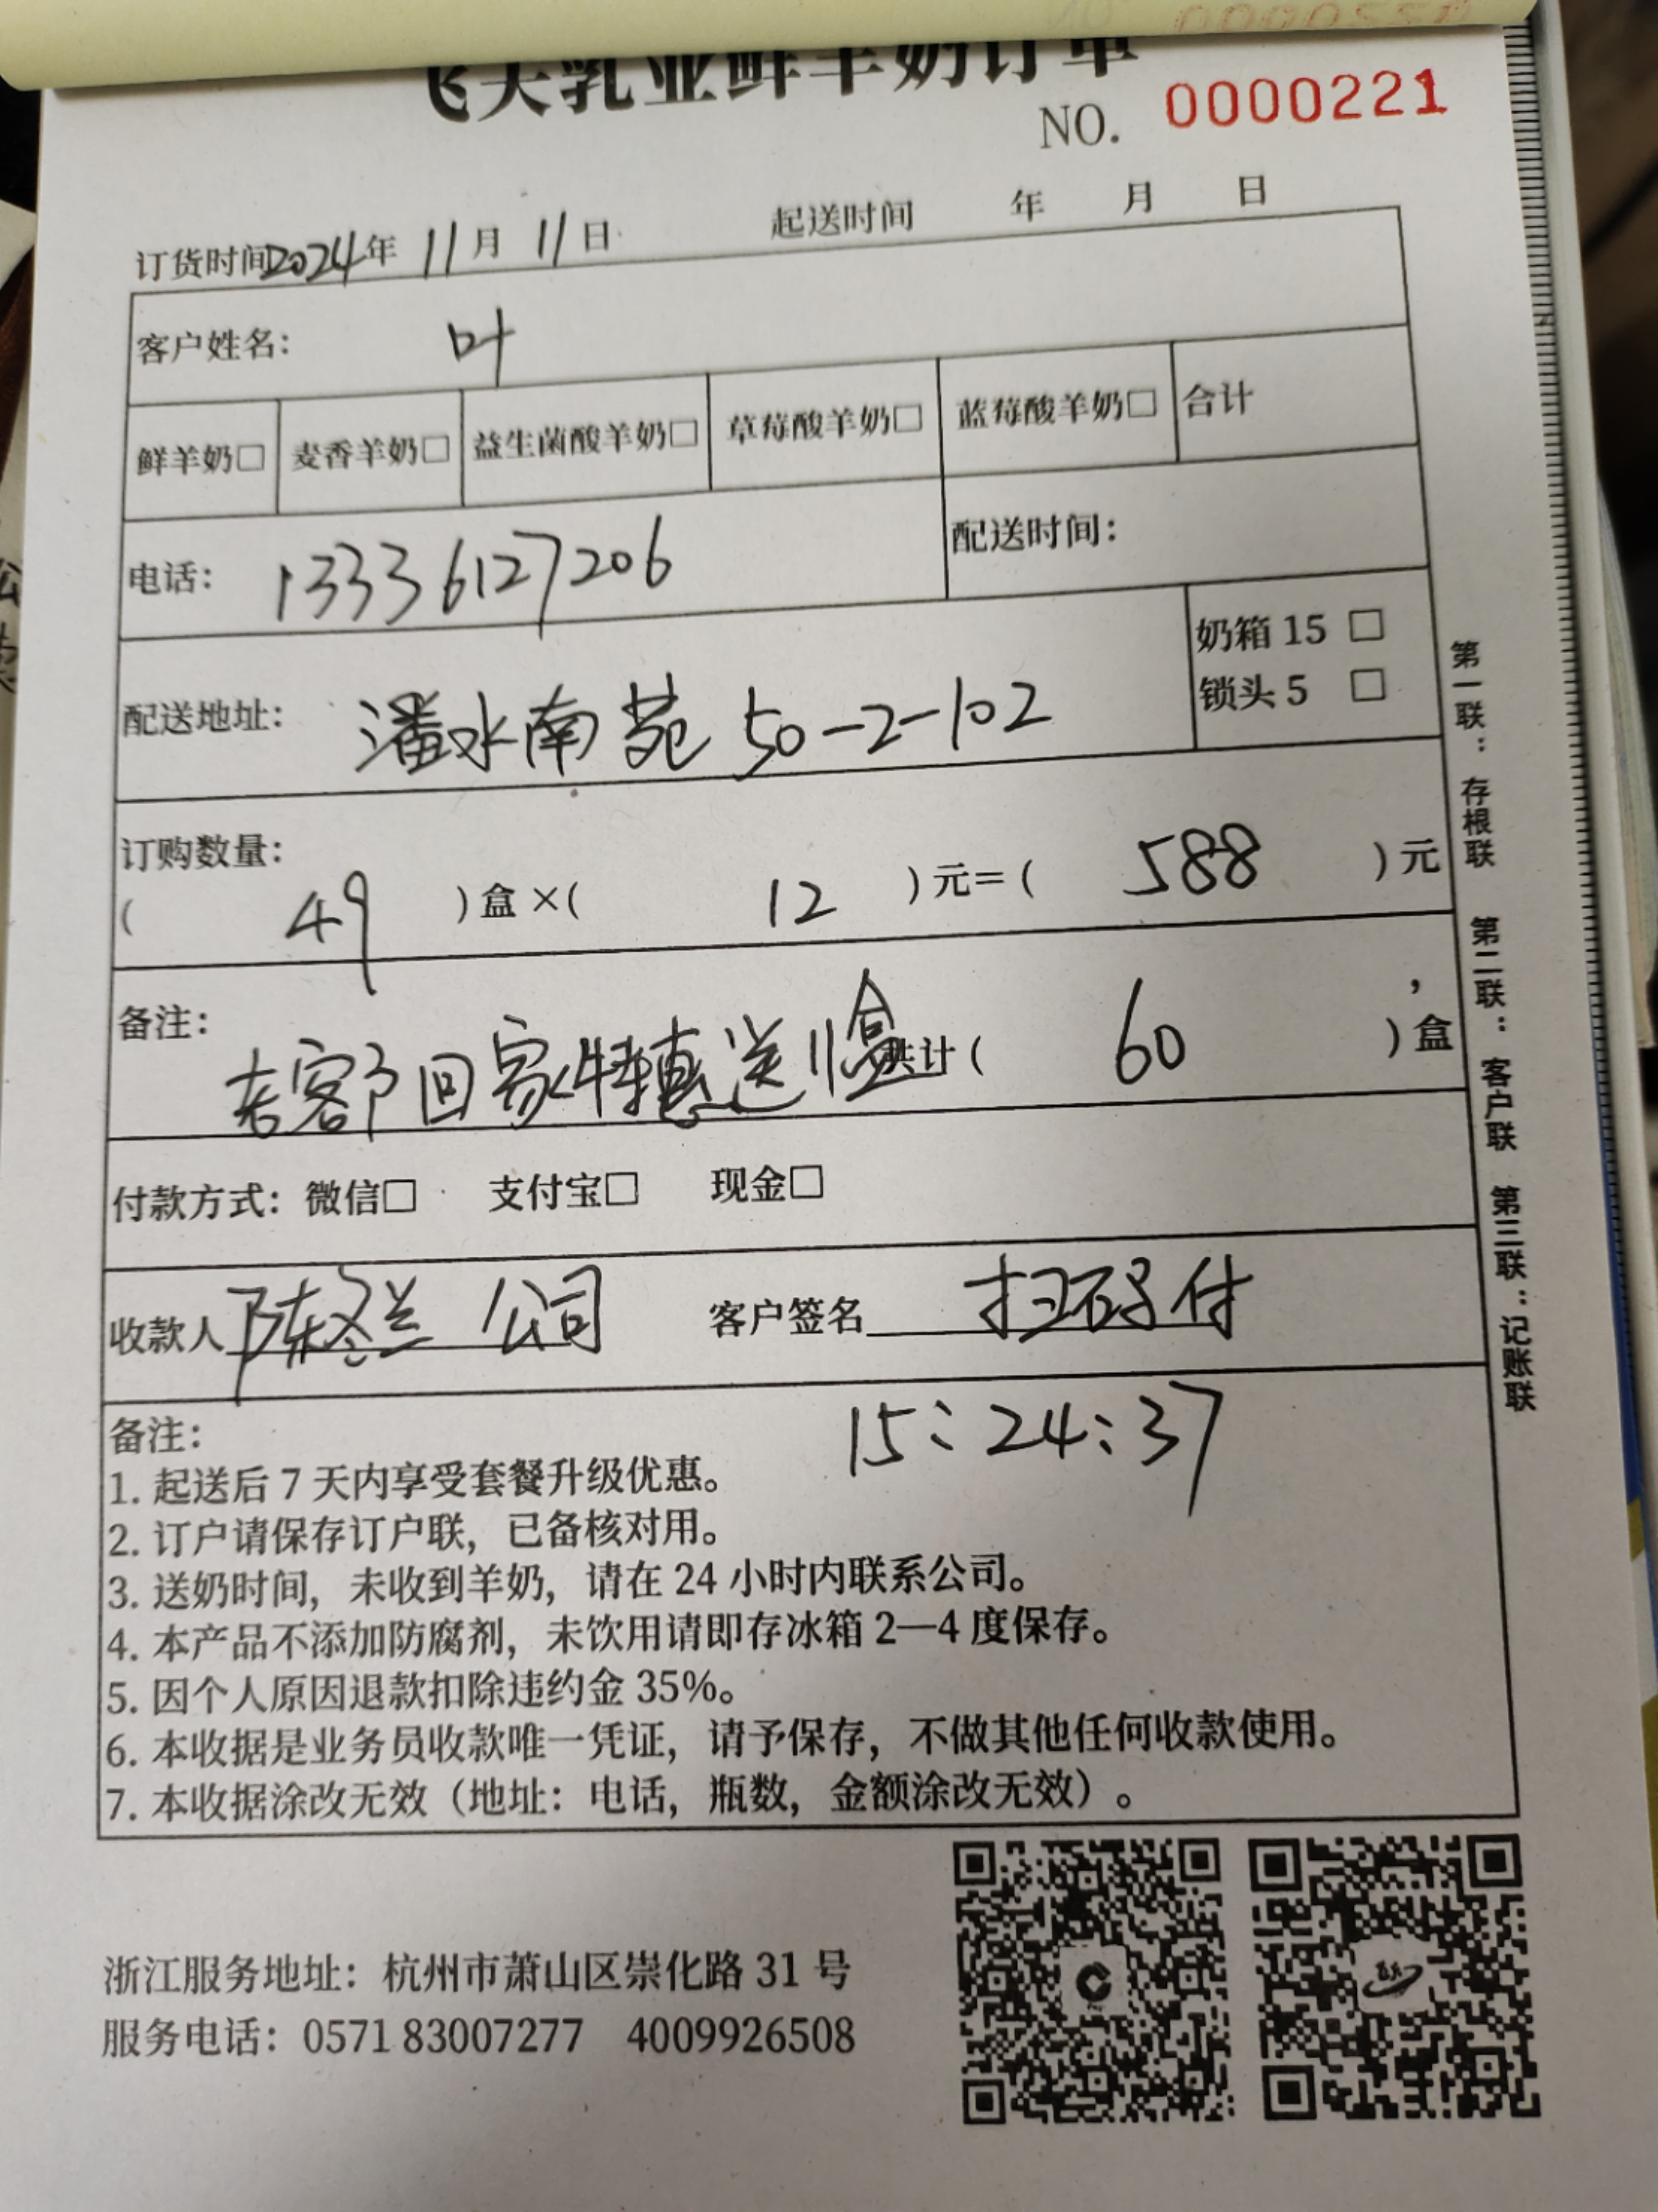 飞天乳业鲜羊奶订单
NO. 0000221
订货时间2024年 11月 11日 起送时间 年 月 日
客户姓名: 叶
鲜羊奶□ 麦香羊奶□ 益生菌酸羊奶□ 草莓酸羊奶□ 蓝莓酸羊奶□ 合计
电话: 13336127206 配送时间:
配送地址: 潘水南苑 50-2-102
奶箱 15 □
锁头 5 □
订购数量:
( 49 )盒×( 12 )元=( 588 )元
备注: 老客户回家特惠送11盒 共计( 60 )盒
付款方式: 微信□ 支付宝□ 现金□
收款人 陈冬兰 公司 客户签名 扫码付
15:24:37
备注:
1. 起送后 7 天内享受套餐升级优惠。
2. 订户请保存订户联，已备核对用。
3. 送奶时间，未收到羊奶，请在 24 小时内联系公司。
4. 本产品不添加防腐剂，未饮用请即存冰箱 2—4 度保存。
5. 因个人原因退款扣除违约金 35%。
6. 本收据是业务员收款唯一凭证，请予保存，不做其他任何收款使用。
7. 本收据涂改无效（地址：电话，瓶数，金额涂改无效）。
第一联：存根联 第二联：客户联 第三联：记账联
浙江服务地址：杭州市萧山区崇化路 31 号
服务电话：0571 83007277 4009926508